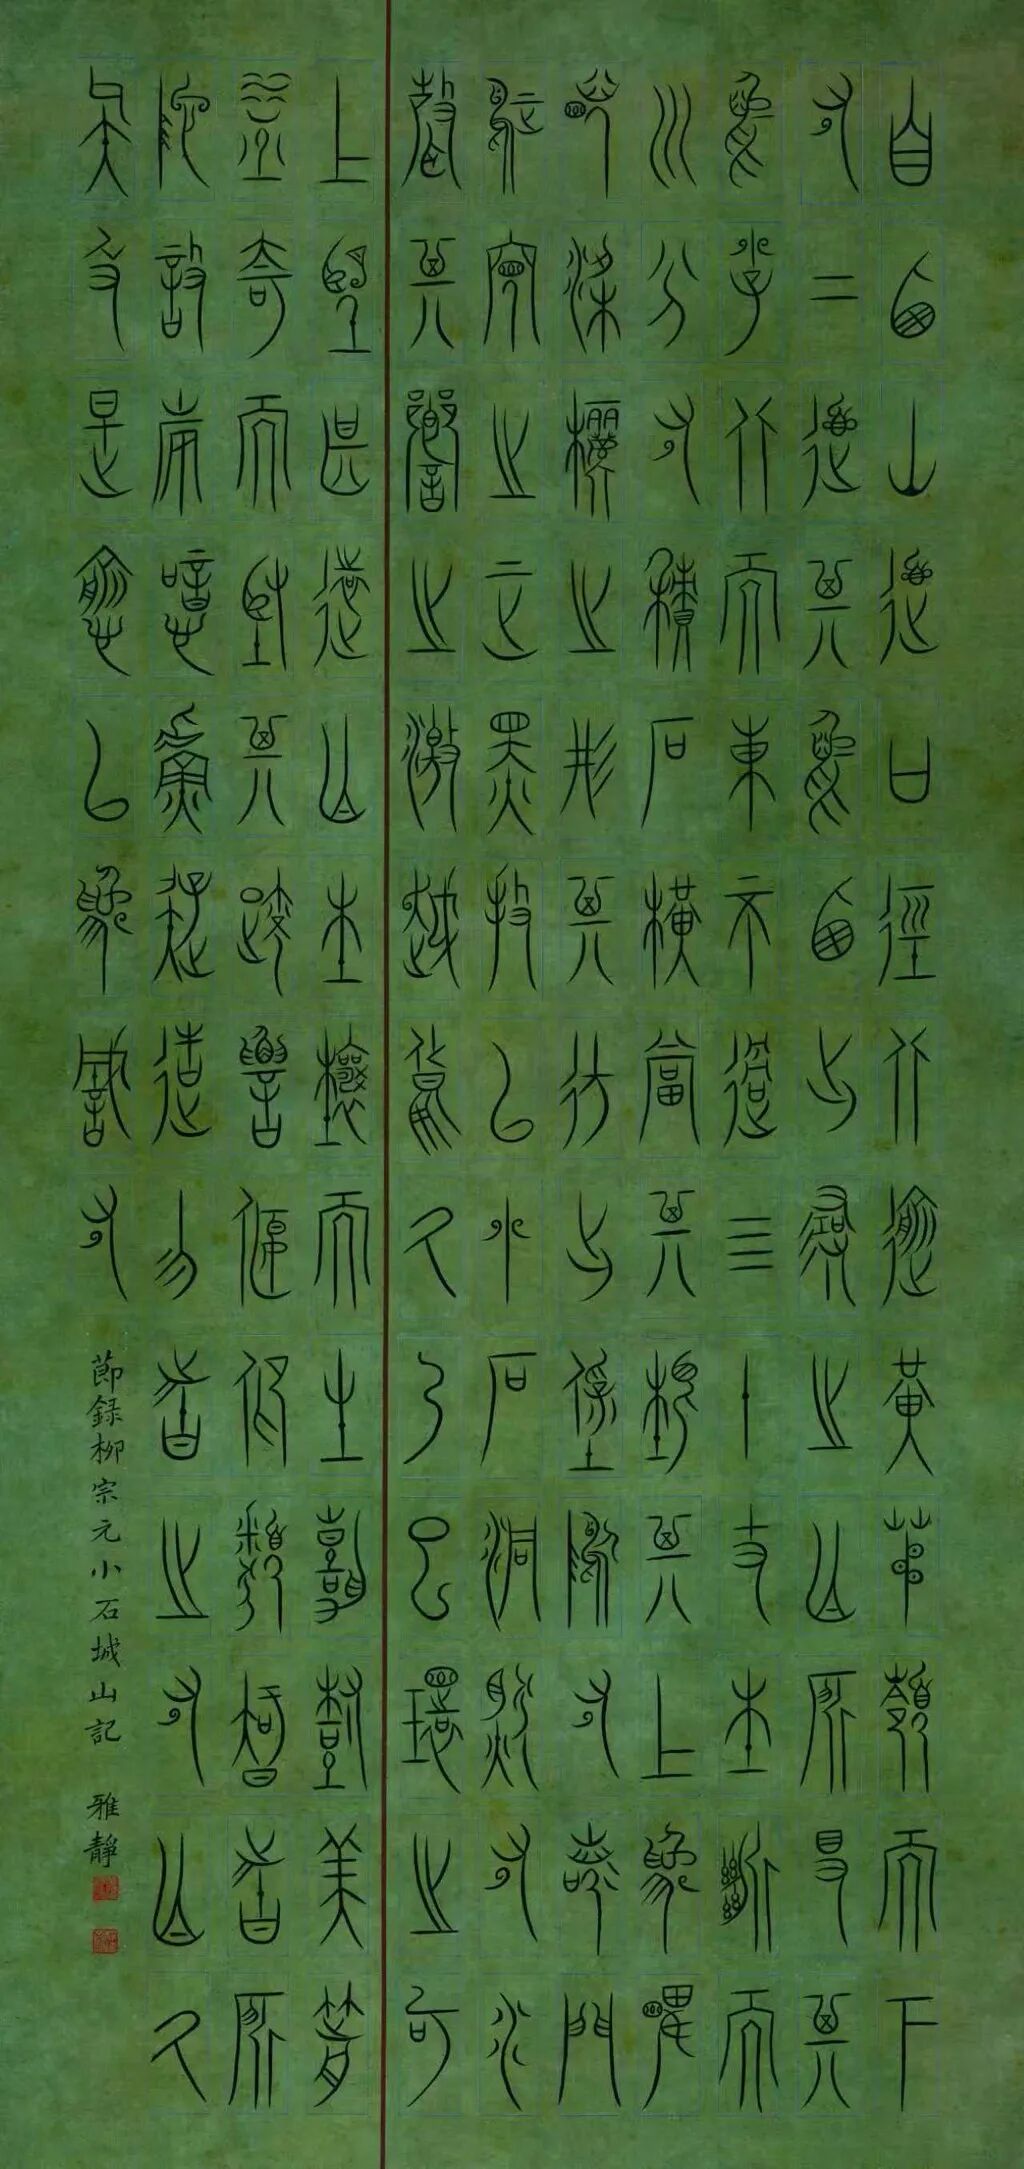 自西山道口徑北踰黃茅嶺而下
有二道其一西出尋之無所得其
一少北而東不過四十丈土斷而
川分有積石橫當其垠其上為睥
睨梁欐之形其旁出堡塢有若門
焉窺之正黑投以小石洞然有水
聲其響之激越良久乃已環之可
上望甚遠無土壤而生嘉樹美箭
益奇而堅其疏數偃仰類智者所
施設也噫吾疑造物者之有無久
矣及是愈以為誠有
節録柳宗元小石城山記 雅靜